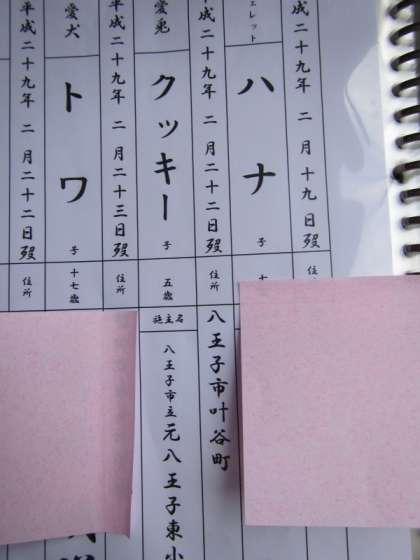 成二十九年 二月十九日歿 住所
ェレット ハナ 号
平成二十九年 二月二十二日歿 住所 八王子市叶谷町
愛兎 クッキー 号 五歳 施主名 八王子市立元八王子東小
平成二十九年 二月二十三日歿 住所
愛犬 トワ 号 十七歳
平成二十九年 二月二十二日歿 住所